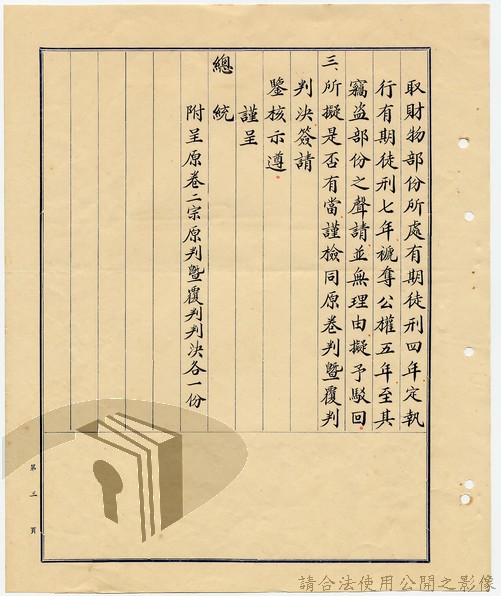 取財物部份所處有期徒刑四年定執
行有期徒刑七年褫奪公權五年至其
竊盜部份之聲請並無理由擬予駁回
三所擬是否有當謹檢同原卷判暨覆判
判決簽請
鑒核示遵
謹呈
總統
附呈原卷二宗原判暨覆判判決各一份
第三頁
請合法使用公開之影像